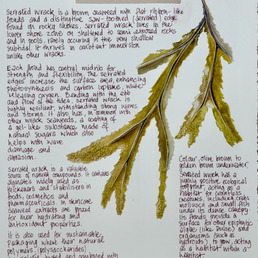 Serrated wrack is a brown seaweed with flat ribbon-like
fronds and a distinctive saw-toothed (serrated) edge
found on rocky shores. Serrated wrack lives in the
lower shore zone on sheltered to semi exposed rocks
and in pools, rarely occurring in the very shallow
subtidal. It thrives in constant immersion
unlike other wracks.
Each frond has a central midrib for
strength and flexibility. The serrated
edges increase the surface area, enhancing
photosynthesis and carbon capture, whilst
releasing oxygen. Bending with the ebb
and flow of the sea, serrated wrack is
highly resilient withstanding strong waves
and storms. It also has, in common with
other wrack seaweeds, a coating of
a gel-like substance made of
natural sugars which also
helps with wave
damage and
abrasion.
Serrated wrack is a valuable
source of natural compounds. It contains
alginates widely used as
thickeners and stabilisers in
foods, cosmetics and
pharmaceuticals. In skincare
seaweed extracts are prized
for their hydrating and
antioxidant properties.
It is also used for sustainable
packaging where their natural
polymers (polysaccharides)
and combined with
Colour: olive brown to
golden brown underwater.
Serrated wrack has a
highly positive ecological
footprint, acting as a
habitat for countless
creatures, including crabs
molluscs and small fish
under its dense canopy
its fronds, provide a
surface for other epiphytic
algae (like dulse) and
organisms (such as
hydroids) to grow, acting
as a habitat within a
habitat.